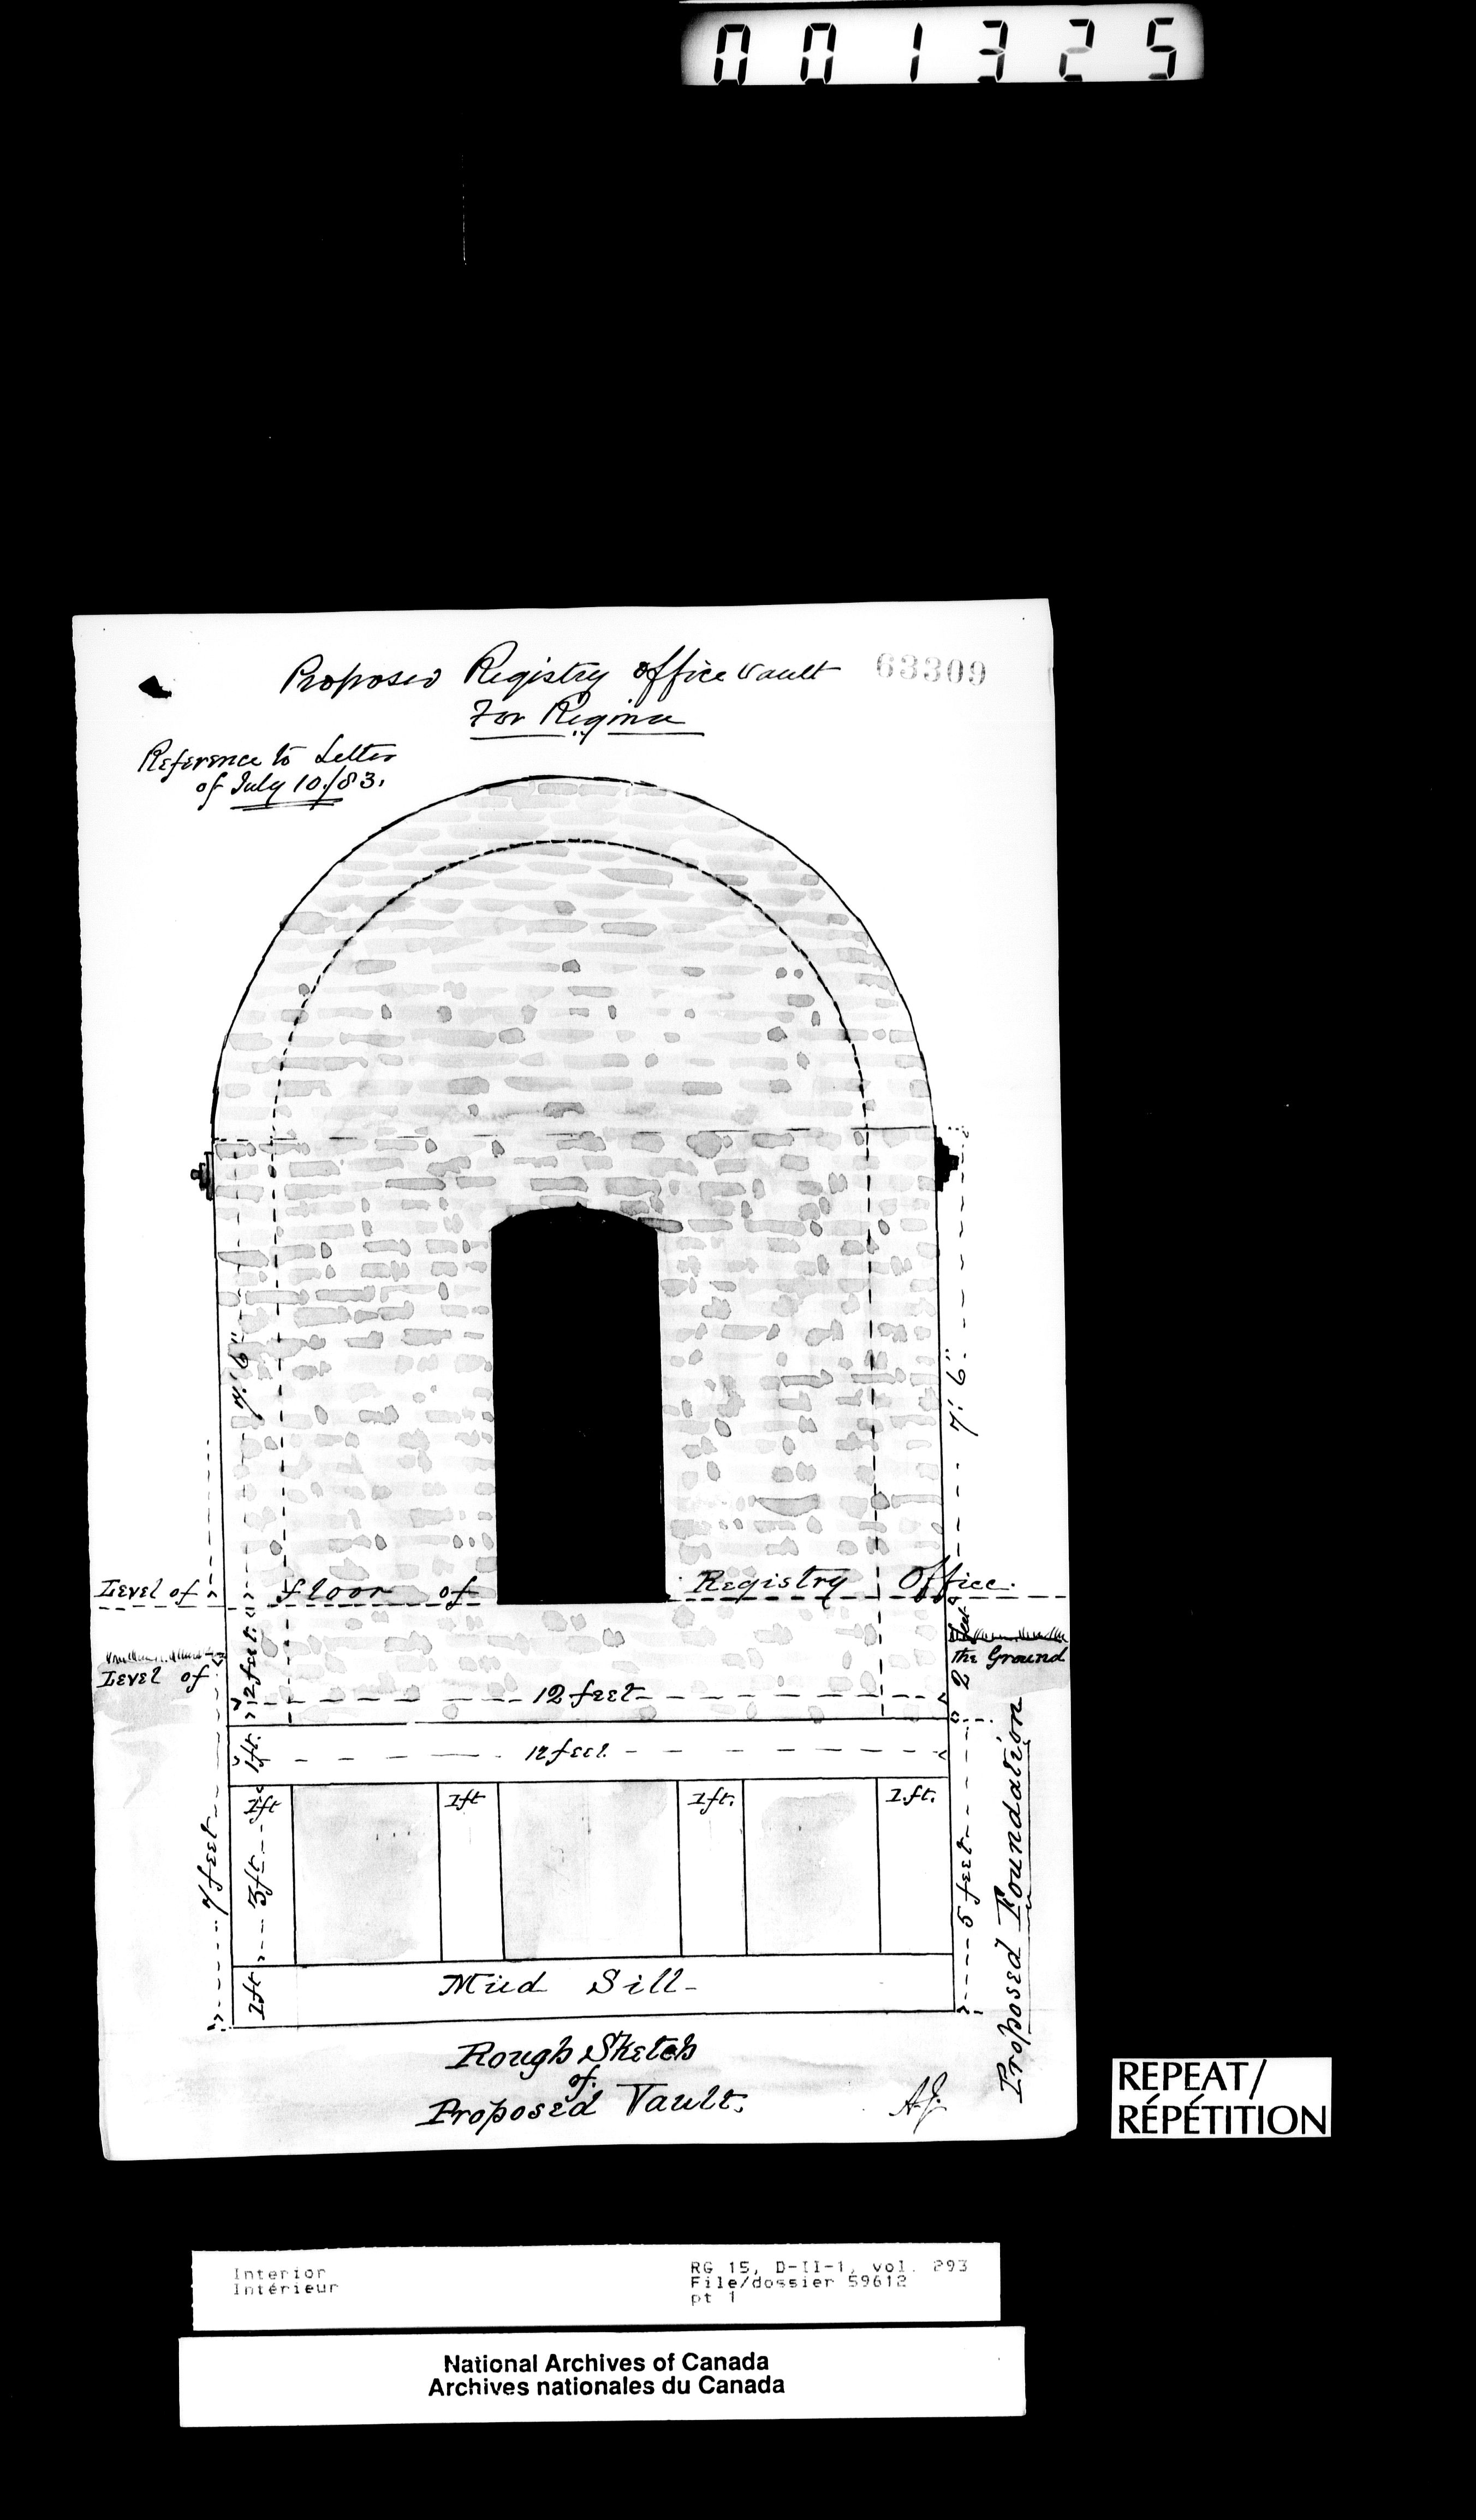 001325
Proposed Registry Office Vault
For Regina
63309
Reference to Letter
of July 10./83.
7' 6"
7' 6"
Level of floor of Registry Office.
Level of the Ground
2 feet
2 feet
12 feet
1ft.
12 feet
1ft
1ft
1ft.
1.ft.
3ft
7 feet
5 feet
Proposed Foundation
1ft
Mud Sill
Rough Sketch
of
Proposed Vault.
A.J.
REPEAT/
RÉPÉTITION
Interior
Intérieur
RG 15, D-II-1, vol. 293
File/dossier 59612
pt 1
National Archives of Canada
Archives nationales du Canada